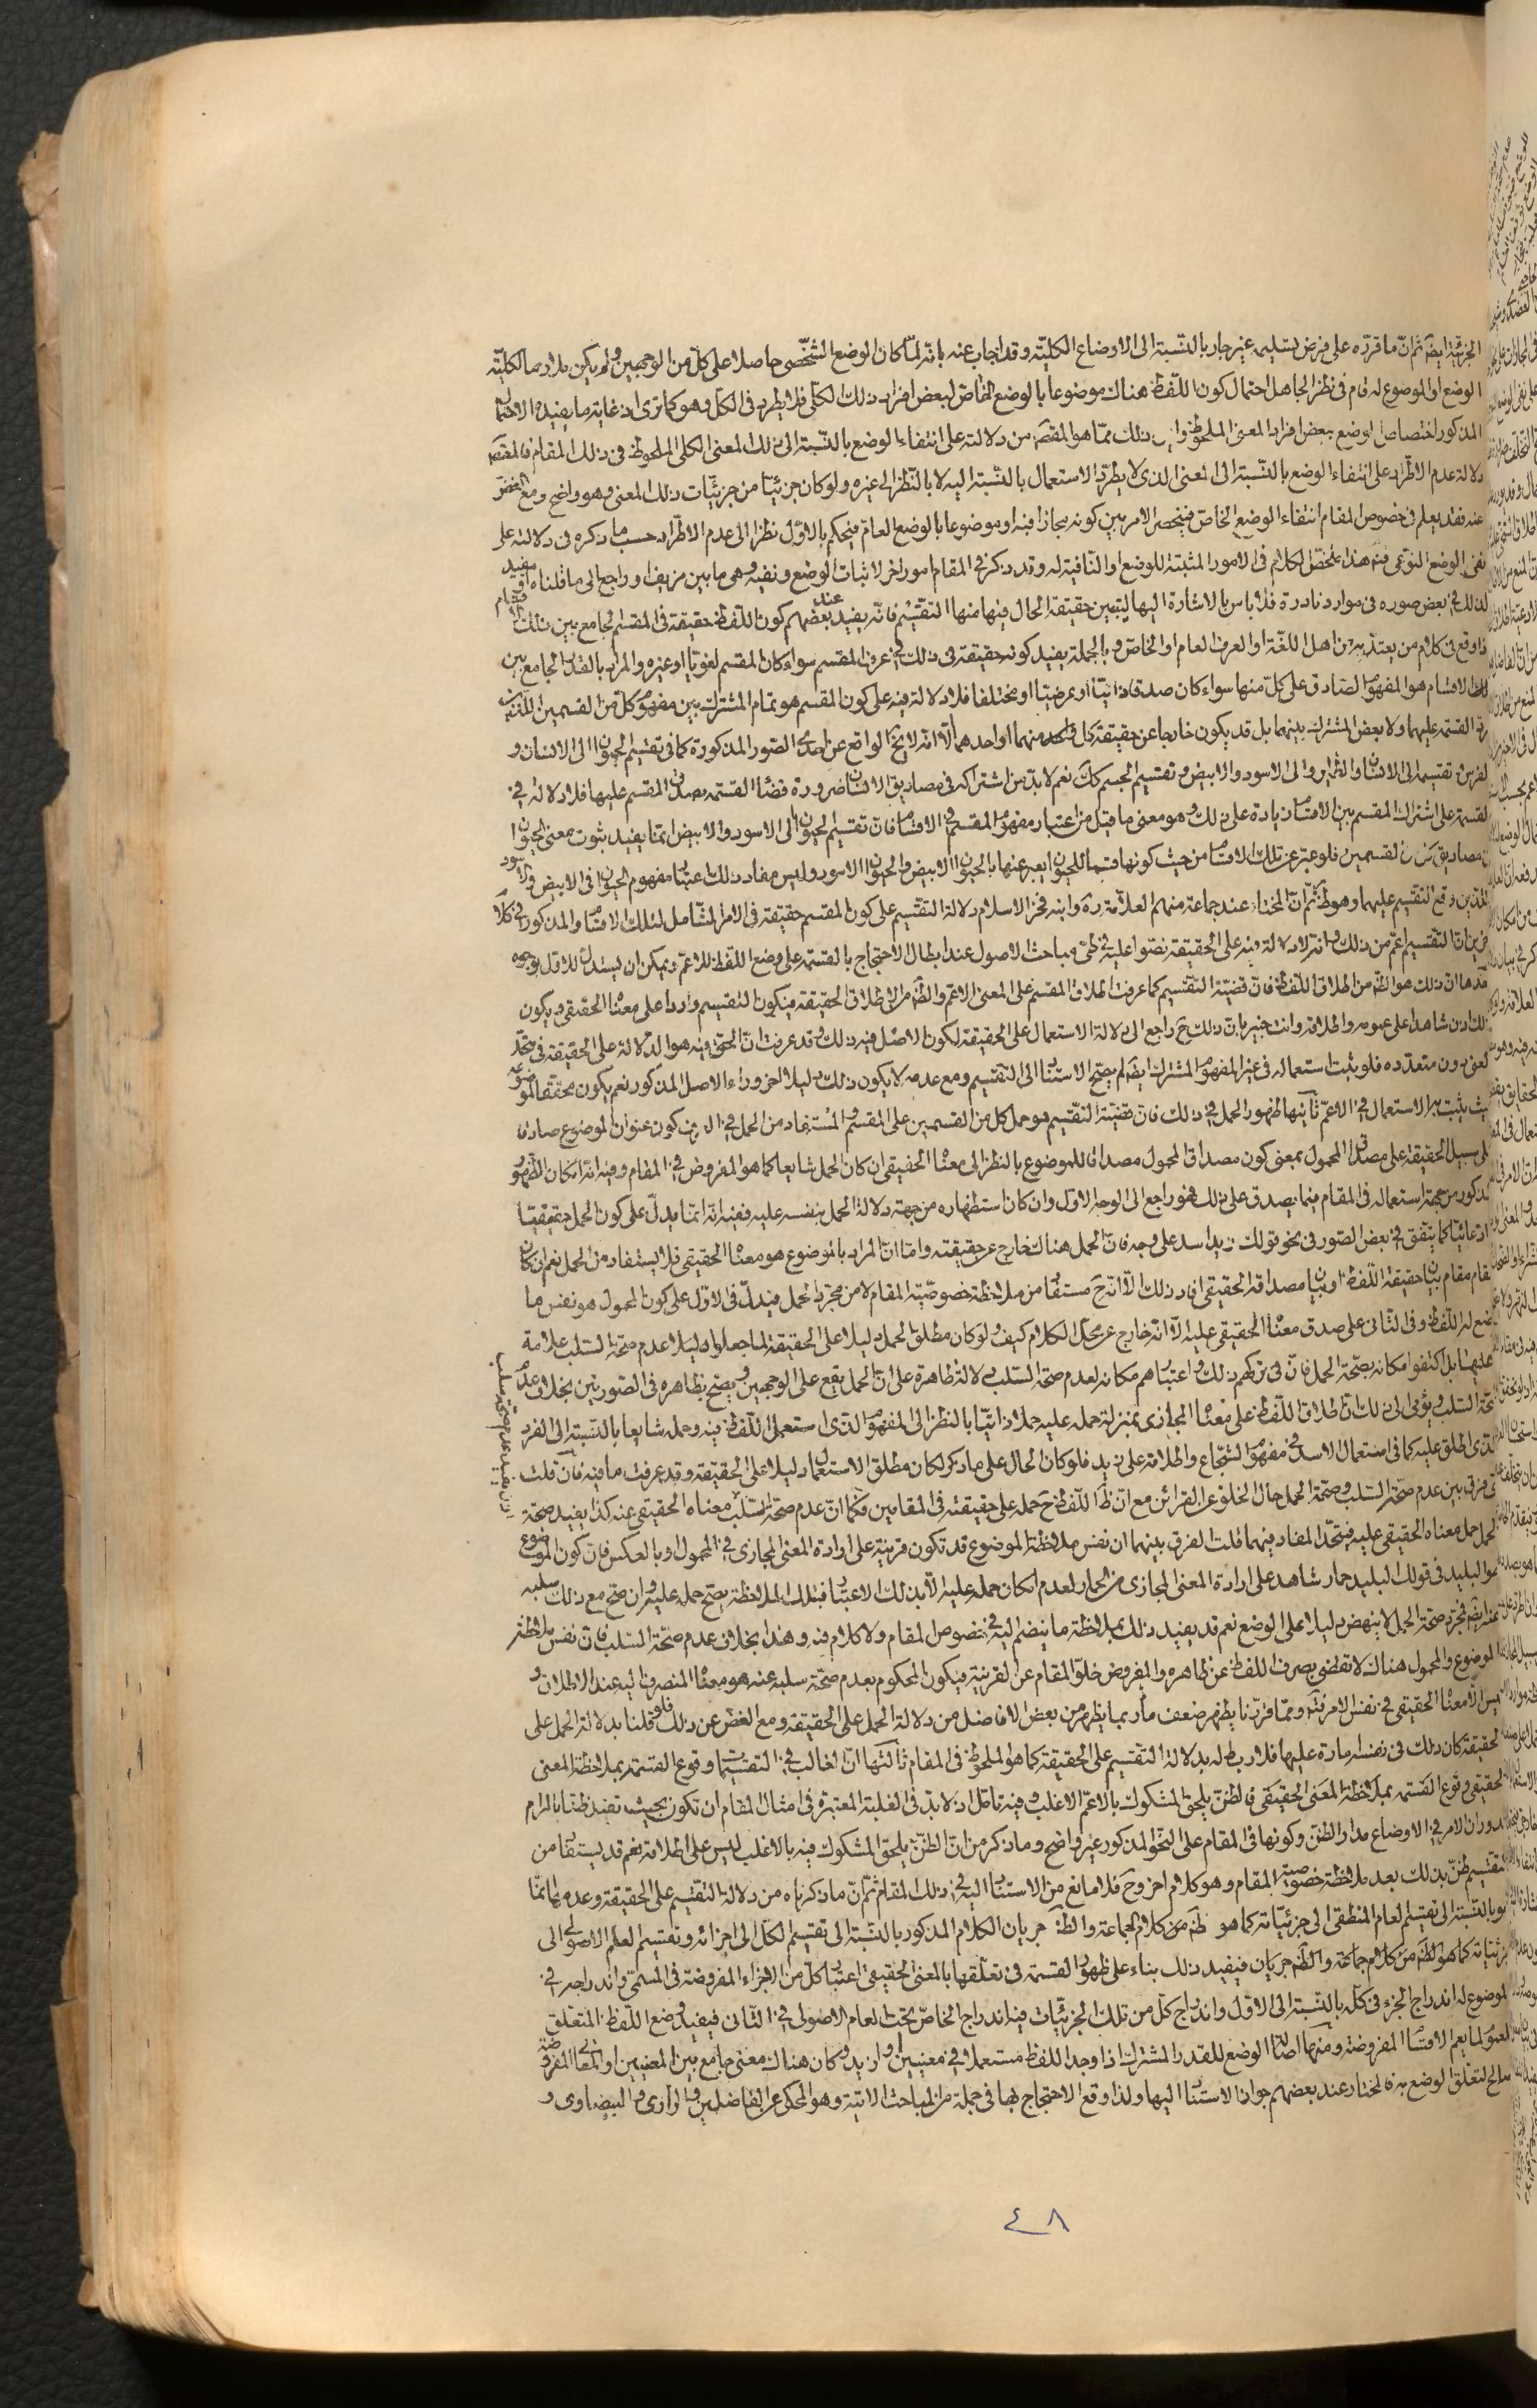 الجزئية ايضا ثم ان ما قرره على فرض تسليمه غير جار بالنسبة الى الاوضاع الكلية وقد اجاب عنه بانه لما كان الوضع الشخصى حاصلا على كل من الوجهين ولم يكن
الوضع او الموضوع له قام فى نظر الجاهل احتمال كون اللفظ هناك موضوعا بالوضع الخاص لبعض افراد ذلك الكلى فلا يطرد فى الكل وهو كما ترى اذ غاية ما يفيده الاحتمال
المذكور اختصاص الوضع ببعض افراد المعنى الملحوظ ذلك مما هو المقصود من دلالته على انتفاء الوضع بالنسبة الى ذلك المعنى الكلى الملحوظ فى ذلك المقام
دلالة عدم الاطراد على انتفاء الوضع بالنسبة الى المعنى الذى لا يطرد الاستعمال بالنسبة اليه لا بالنظر الى غيره ولو كان جزئيا من جزئيات ذلك المعنى وهو واضح ومع الغض
عنه فقد يعلم فى خصوص المقام انتفاء الوضع الخاص فينحصر الامر بين كونه مجازا فيه او موضوعا بالوضع العام فيحكم بالاول نظرا الى عدم الاطراد حسب ما ذكره فى دلالته على
نفى الوضع النوعى فيه هذا ملخص الكلام فى الامور المثبتة للوضع او النافية له وقد ذكر فى المقام امور اخر لاثبات الوضع ونفيه وهى ما بين مزيف او راجع الى ما قلناه او مفيد
لذلك فى بعض صوره فى موارد نادرة فلا باس بالاشارة اليها ليتبين حقيقة الحال فيها منها التقسيم فانه يفيد عند بعضهم كون اللفظ حقيقة فى المقسم الجامع بين تلك الاقسام
اذا وقع فى كلام من يعتد به من اهل اللغة او العرف العام او الخاص وبالجملة يفيد كونه حقيقة فى ذلك فى عرف المقسم سواء كان المقسم لغويا او غيره والمراد بالقدر الجامع بين
تلك الاقسام هو المفهوم الصادق على كل منها سواء كان صدقا ذاتيا او عرضيا او مختلفا فلا دلالة فيه على كون المقسم هو تمام المشترك بين مفهوم كل من القسمين اللذين
القسمة عليهما ولا بعض المشترك بينهما بل قد يكون خارجا عن حقيقة كل واحد منهما او احدهما الا انه لا يخ الواقع عن احدى الصور المذكورة كما فى تقسيم الحيوان الى الانسان و
الفرس وتقسيمه الى الانسان والطير والى الاسود والابيض وتقسيم الجسم كك نعم لا بد من اشتراكه فى مصاديق الاقسام ضرورة قضاء القسمة بصدق المقسم عليها فلا دلالة فى
القسمة على اشتراك المقسم بين الاقسام زيادة على ذلك وهو معنى ما قيل من اعتبار مفهوم المقسم فى الاقسام فان تقسيم الحيوان الى الاسود والابيض انما يفيد ثبوت معنى الحيوان
مصاديق القسمين فلو عبر عن تلك الاقسام من حيث كونها قسما للحيوان يعبر عنها بالحيوان الابيض والحيوان الاسود وليس مفاد ذلك اعتبار مفهوم الحيوان فى الابيض والاسود
اللذين وقع التقسيم عليهما وهو ظ ثم ان المختار عند جماعة منهم العلامة ره وابنه فخر الاسلام دلالة التقسيم على كون المقسم حقيقة فى الامر الشامل لتلك الاقسام والمذكور فى كلام
ان التقسيم اعم من ذلك وانه لا دلالة فيه على الحقيقة نصوا عليه فى طى مباحث الاصول عند ابطال الاحتجاج بالقسمة على وضع اللفظ للاعم ويمكن ان يستدل للاول بوجوه
احدها ان ذلك هو الظ من اطلاق اللفظ فان قضية التقسيم كما عرفت اطلاق المقسم على المعنى الاعم والظ من الاطلاق الحقيقة فيكون التقسيم واردا على معناه الحقيقى ويكون
ذلك اذن شاهدا على عمومه واطلاقه وانت خبير بان ذلك ح راجع الى دلالة الاستعمال على الحقيقة لكون الاصل فيه ذلك وقد عرفت ان الحق فيه هو الدلالة على الحقيقة فى متحد
المعنى دون متعدده فلو ثبت استعماله فى غير المفهوم المشترك ايضا لم يصح الاستناد الى التقسيم ومع عدمه لا يكون ذلك دليلا اخر وراء الاصل المذكور نعم يكون محققا لموضوعه
حيث يثبت به الاستعمال فى الاعم ثانيها ظهور الحمل فى ذلك فان قضية التقسيم هو حمل كل من القسمين على المقسم والمستفاد من الحمل فى العرف كون عنوان الموضوع صادقا
على سبيل الحقيقة على مصداق المحمول بمعنى كون مصداق المحمول مصداقا للموضوع بالنظر الى معناه الحقيقى ان كان الحمل شايعا كما هو المفروض فى المقام وفيه انه ان كان الظهور
المذكور من جهة استعماله فى المقام فيما يصدق على ذلك فهو راجع الى الوجه الاول وان كان استظهاره من جهة دلالة الحمل بنفسه عليه ففيه انه انما يدل على كون الحمل حقيقيا
لا ادعائيا كما يتفق فى بعض الصور فى نحو قولك زيد اسد على وجه فان الحمل هناك خارج عن حقيقته واما ان المراد بالموضوع هو معناه الحقيقى فلا يستفاد من الحمل نعم ان كان
المقام مقام بيان حقيقة اللفظ او بيان مصداقه الحقيقى افاد ذلك الا انه ح مستفاد من ملاحظة خصوصية المقام لا من مجرد الحمل فيدل فى الاول على كون المحمول هو نفس ما
وضع له اللفظ وفى الثانى على صدق معناه الحقيقى عليه الا انه خارج عن محل الكلام كيف ولو كان مطلق الحمل دليلا على الحقيقة لما جعلوا عدم صحة السلب علامة
عليها بل اكتفوا مكانه بصحة الحمل فان فى تركهم ذلك واعتبارهم مكانه لعدم صحة السلب دلالة ظاهرة على ان الحمل يقع على الوجهين ويصح بظاهره فى الصورتين بخلاف عدم
صحة السلب ويؤمى الى ذلك ان اطلاق اللفظ على معناه المجازى بمنزلة حمله عليه حملا ذاتيا بالنظر الى المفهوم الذى استعمل اللفظ فيه وحمله شايعا بالنسبة الى الفرد
الذى اطلق عليه كما فى استعمال الاسد فى مفهوم الشجاع واطلاقه على زيد فلو كان الحال على ما ذكر لكان مطلق الاستعمال دليلا على الحقيقة وقد عرفت ما فيه فان قلت
اى فرق بين عدم صحة السلب وصحة الحمل حال الخلو عن القرائن مع ان ظ اللفظ ح حمله على حقيقته فى المقامين فكما ان عدم صحة السلب معناه الحقيقى عنه كذا يفيد صحة
الحمل حمل معناه الحقيقى عليه فيتحد المفاد فيهما قلت الفرق بينهما ان نفس ملاحظة الموضوع قد تكون قرينة على ارادة المعنى المجازى فى المحمول وبالعكس فان كون الموضوع
هو البليد فى قولك البليد حمار شاهد على ارادة المعنى المجازى من الحمار لعدم امكان حمله عليه الا بذلك الاعتبار فبتلك الملاحظة يصح حمله عليه وان صح مع ذلك سلبه
عنه ايضا فمجرد صحة الحمل لا ينهض دليلا على الوضع نعم قد يفيد ذلك بملاحظة ما ينضم اليه فى خصوص المقام ولا كلام فيه وهذا بخلاف عدم صحة السلب فان نفس ملاحظة
الموضوع والمحمول هناك لا تقضى بصرف اللفظ عن ظاهره والمفروض خلو المقام عن القرينة فيكون المحكوم بعدم صحة سلبه عنه هو معناه المنصرف اليه عند الاطلاق و
ليس الا معناه الحقيقى فى نفس الامر ومما قررنا يظهر ضعف ما ربما يظهر من بعض الافاضل من دلالة الحمل على الحقيقة ومع الغض عن ذلك فلو قلنا بدلالة الحمل على
الحقيقة كان ذلك فى نفسه امارة عليها فلا ربط له بدلالة التقسيم على الحقيقة كما هو الملحوظ فى المقام ثالثها ان الغالب فى التقسيمات وقوع القسمة بملاحظة المعنى
الحقيقى وقوع القسمة بملاحظة المعنى الحقيقى فالظن يلحق المشكوك بالاعم الاغلب وفيه تامل اذ لا بد فى الغلبة المعتبرة فى امثال المقام ان تكون بحيث تفيد ظنا بالمرام
لدوران الامر فى الاوضاع مدار الظن وكونها فى المقام على النحو المذكور غير واضح وما ذكر من ان الظن يلحق المشكوك فيه بالاغلب ليس على اطلاقه نعم قد يستفاد من
التقسيم ظن بذلك بعد ملاحظة خصوصية المقام وهو كلام اخر وح فلا مانع من الاستناد اليه فى ذلك المقام ثم ان ما ذكرناه من دلالة التقسيم على الحقيقة وعدمها انما
هو بالنسبة الى تقسيم العام المنطقى الى جزئياته كما هو ظ من كلام الجماعة والظ جريان الكلام المذكور بالنسبة الى تقسيم الكل الى اجزائه وتقسيم العام الاصولى الى
جزئياته كما هو الظ من كلام جماعة والظ جريان فيفيد ذلك بناء على ظهور القسمة فى تعلقها بالمعنى الحقيقى اعتبار كل من الاجزاء المفروضة فى المسمى واندراجه فى
الموضوع له اندراج الجزء فى كله بالنسبة الى الاول واندراج كل من تلك الجزئيات فيه اندراج الخاص تحت العام الاصولى فى الثانى فيفيد وضع اللفظ المتعلق
العموم لما يعم الاقسام المفروضة ومنها اصالة الوضع للقدر المشترك اذا وجد اللفظ مستعملا فى معنيين او ازيد وكان هناك معنى جامع بين المعنيين او المعانى المفروضة
صالح لتعلق الوضع به فالمختار عند بعضهم جواز الاستناد اليها ولذا وقع الاحتجاج بها فى جملة من المباحث الاتية وهو المحكى عن الفاضلين والرازى والبيضاوى و
٤٨